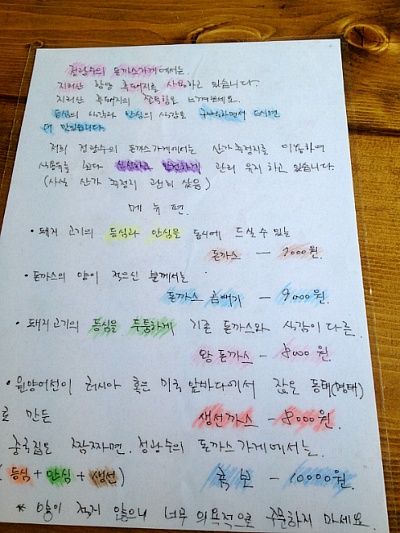 정광수의 돈까스가게에서는.
지리산 함양 흑돼지를 사용하고 있습니다.
지리산 흑돼지의 느껴보세요.
등심의 식감과 안심의 식감을 드시면
더 맛있습니다.
저희 정광수의 돈까스가게에서는 산가측정지를 이용하여
식용유를 보다 안전하게 관리 유지 하고 있습니다
(사실 산가 측정지 관심 많음)
메뉴편.
• 돼지 고기의 등심과 안심을 동시에 드실수 있는
돈까스 - 7000원.
• 돈까스의 양이 적으신 분께서는
돈까스 곱배기 - 9000원.
• 돼지고기의 등심을 두툼하게 기존 돈까스와 식감이 다른.
왕돈까스 - 8000원.
• 원양어선이 러시아 혹은 미국 앞바다에서 잡은 동태(명태)
로 만든 생선까스 - 8000원.
중국집은 짬짜면. 정광수의 돈까스가게에서는.
(등심+안심+생선) 흑본 - 10000원.
* 양이 적지 않으니 너무 의욕적으로 주문하지 마세요.